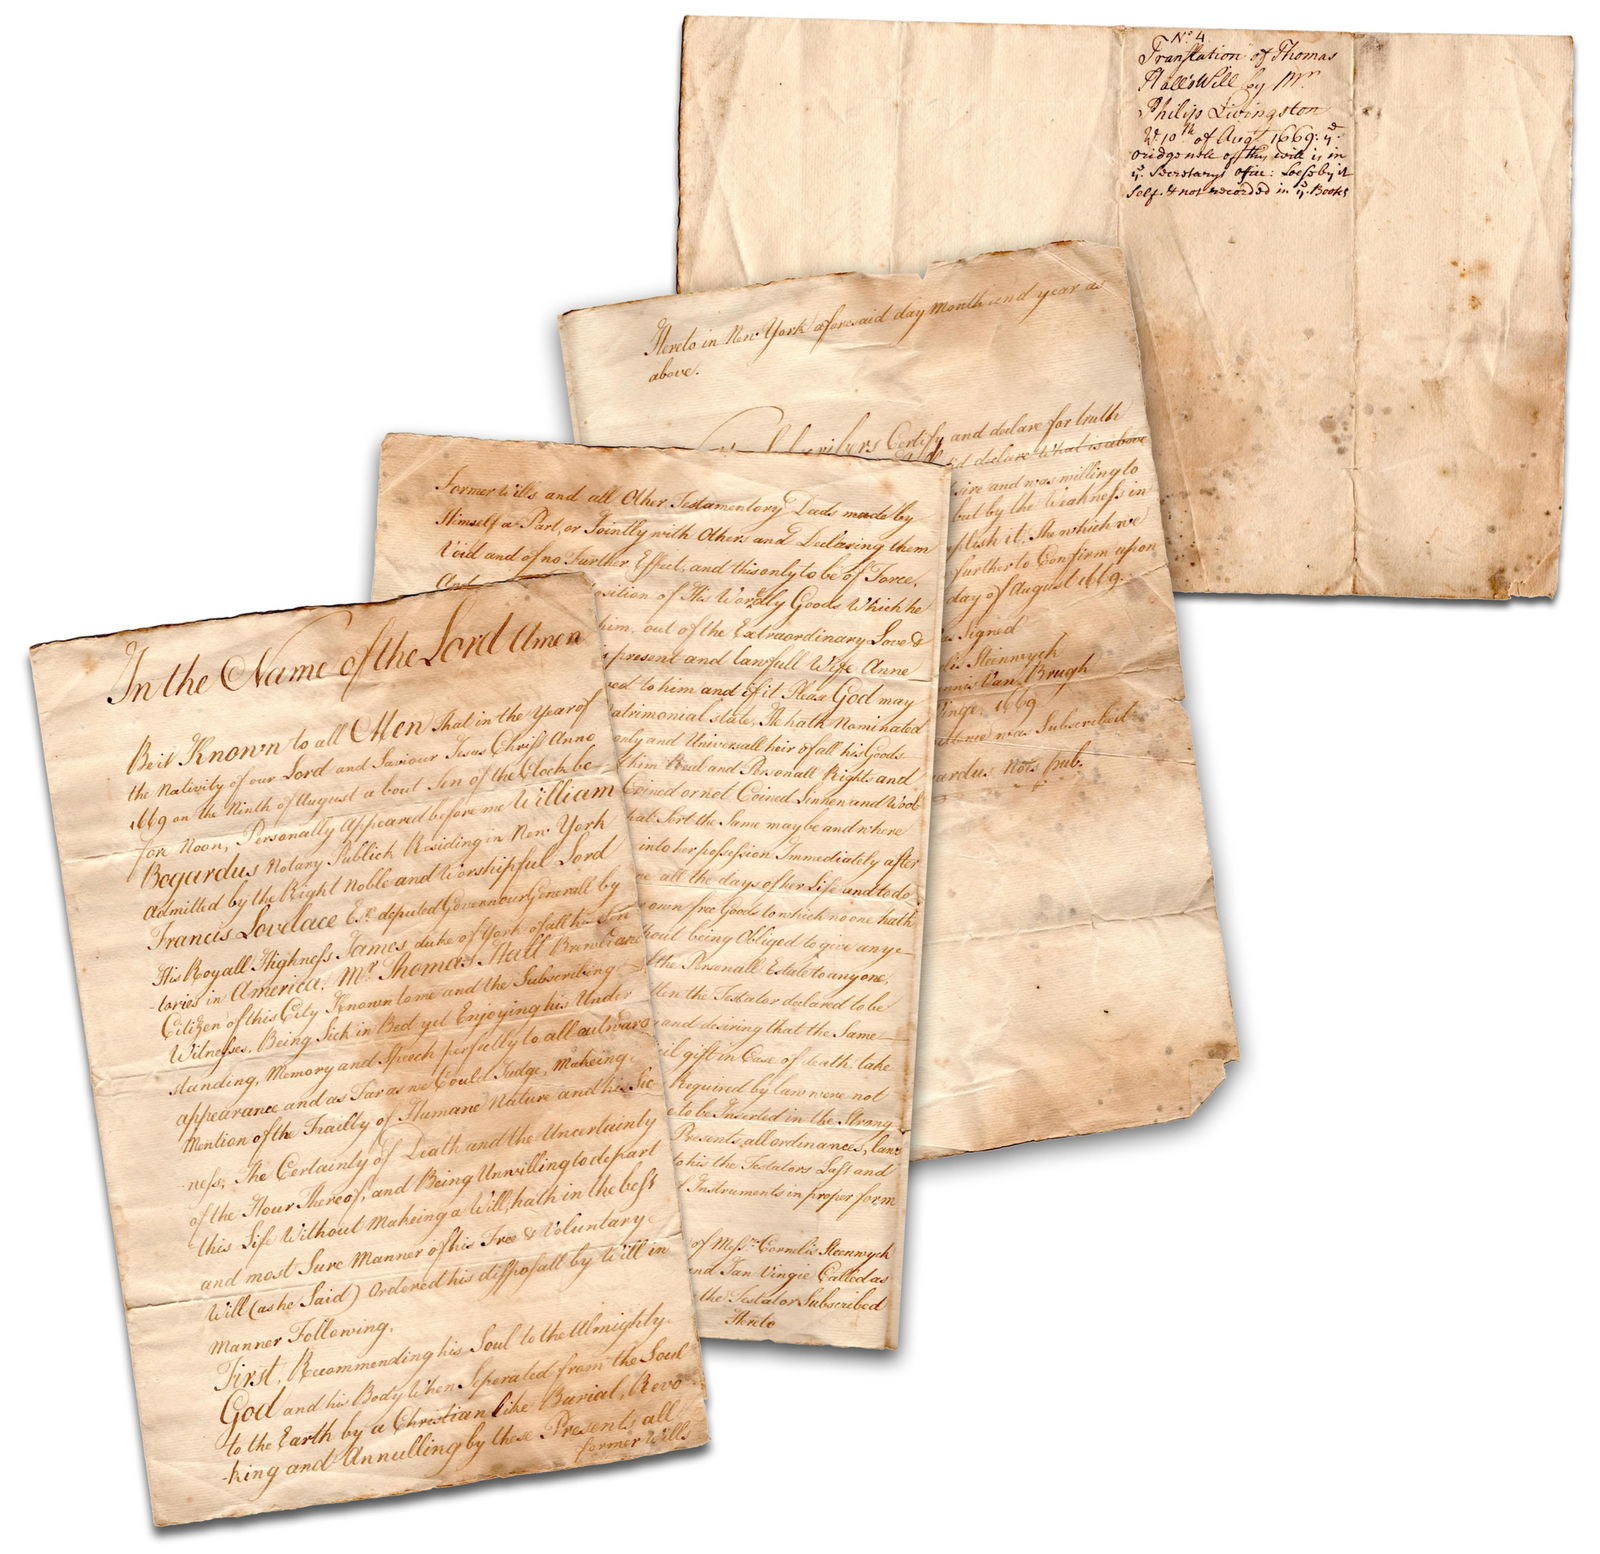 In the Name of the Lord Amen
Be it Known to all Men that in the Year of
the Nativity of our Lord and Saviour Jesus Christ Anno
1669 on the Ninth of August about Ten of the Clock be-
fore Noon, Personally Appeared before me William
Bogardus Notary Publick Residing in New York
Admitted by the Right Noble and Worshipful Lord
Francis Lovelace Esqr. deputed Governour Generall by
His Royall Highness James duke of York of all his Teri
-tories in America. Mr. Thomas Hall Brewer and
Citizen of this City Known to me and the Subscribing
Witnesses, Being Sick in Bed yet Enjoying his Under
standing, Memory and Speech perfectly to all outward
appearance and as Far as we Could Judge, Makeing
Mention of the Frailty of Humane Nature and his Sic
-ness; The Certainty of Death and the Uncertainty
of the Hour Thereof, and Being Unwilling to depart
this Life Without Makeing a Will, hath in the best
and most Sure Manner of his Free & Voluntary
Will (as he Said) Ordered his dispposall by Will in
Manner Following.
First, Recommending his Soul to the Almighty
God and his Body When Seperated from the Soul
to the Earth by a Christian like Burial, Revo
-king and Annulling by these Presents all
former Wills
Former Wills and all Other Testamentory Deeds made by
Himself a Part, or Jointly with Others and Declaring them
Void and of no Further Effect, and this only to be of Force,
And
sition of His Wordly Goods Which he
him, out of the Extraordinary Love &
present and lawfull Wife Anne
to him and if it Please God may
atrimonial state, He hath Nominated
only and Universall heir of all his Goods
him Real and Personall Rights and
Coined or not Coined Linnen and Wool
hat Sort the Same may be and where
into her possession Immediately after
all the days of her Life and to do
own free Goods to which no one hath
hout being Obliged to give any
the Personall Estate to any one,
the Testator declared to be
and desiring that the Same
gift in Case of death, take
Required by law were not
to be Inserted in the Strong
Presents, all ordinances, laws
to his the Testators Last and
Instruments in proper form
of Messrs. Cornelis Steenwyck
and Jan Vingie Called as
the Testator Subscribed
Hereto
Hereto in New York aforesaid day Month and year as
above.
Certify and declare for truth
declare What is above
sire and was willing to
but by the Weakness in
plish it, the which we
further to Confirm upon
day of August 1669.
as Signed
Steenwyck
nnis Van Brugh
Vinge, 1669
was Subscribed
ardus Not: pub.
No. 4
Translation of Thomas
Hall's Will by Mr.
Philip Livingston
10th of Augt 1669: ye.
oridgenele of this will is in
ye. Secretarys ofice: Loess by it
Self. & not recorded in ye. Books